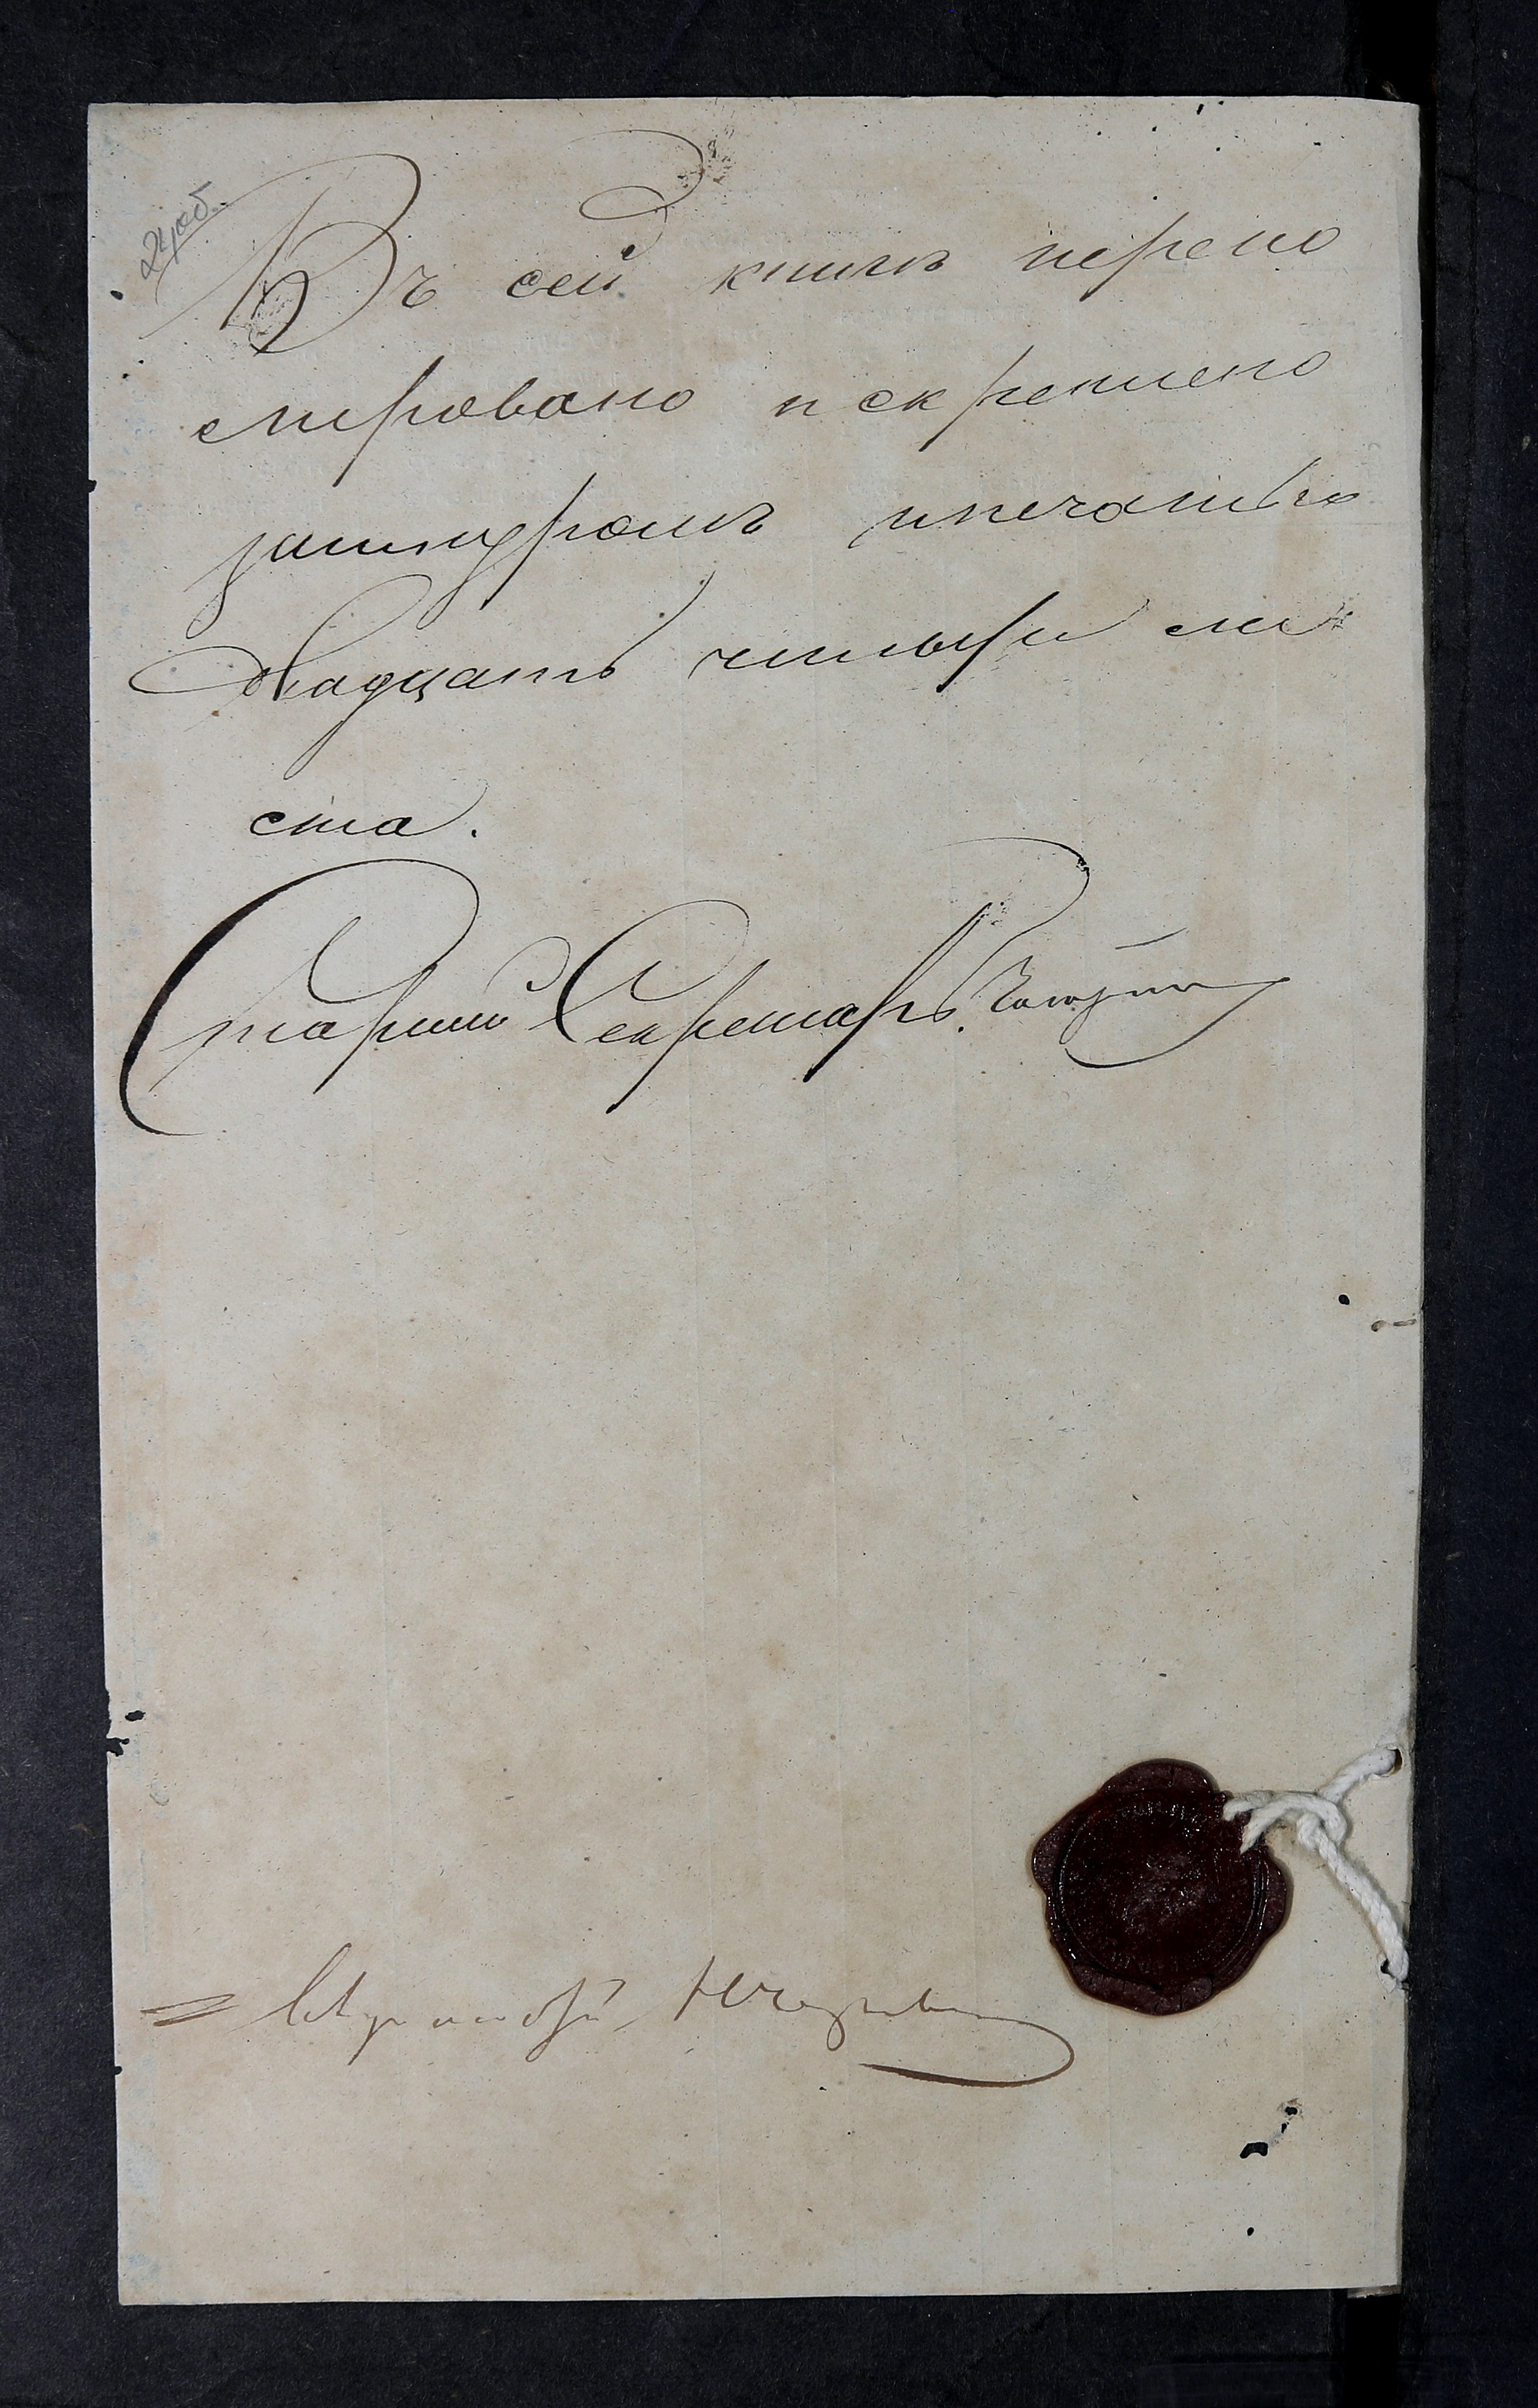 24об.
Въ сей книгѣ перено
мировано и скреплено
зашнуромъ ипечатью
двадцать четыри ли
ста.
Старшій Секретарь